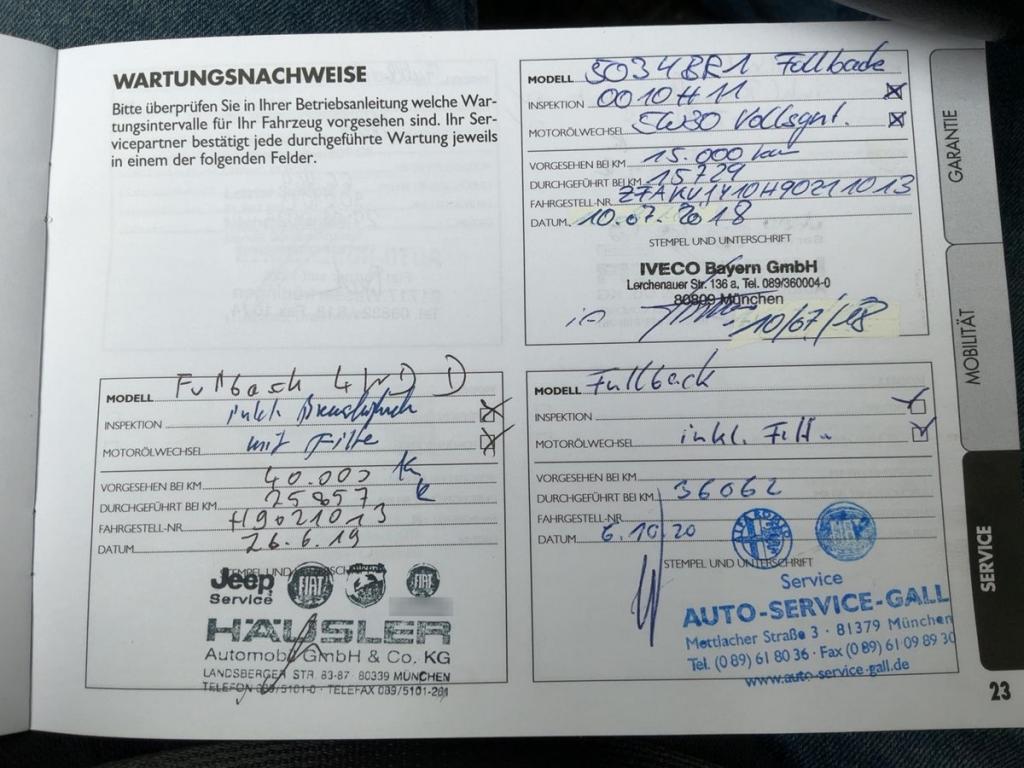 WARTUNGSNACHWEISE
Bitte überprüfen Sie in Ihrer Betriebsanleitung welche War-
tungsintervalle für Ihr Fahrzeug vorgesehen sind. Ihr Ser-
vicepartner bestätigt jede durchgeführte Wartung jeweils
in einem der folgenden Felder.
MODELL 5034BR1 Fullback
INSPEKTION 0010H11
MOTORÖLWECHSEL 5W30 Vollsynt.
VORGESEHEN BEI KM 15.000 km
DURCHGEFÜHRT BEI KM 15729
FAHRGESTELL-NR. ZFAKV1Y10H9021013
DATUM 10.07.2018
STEMPEL UND UNTERSCHRIFT
IVECO Bayern GmbH
Lerchenauer Str. 136 a, Tel. 089/360004-0
80809 München
10/07/18
MODELL Fullback 4WD D
INSPEKTION inkl.
MOTORÖLWECHSEL mit Filter
VORGESEHEN BEI KM 40.000 km
DURCHGEFÜHRT BEI KM 25857
FAHRGESTELL-NR H9021013
DATUM 26.6.19
STEMPEL UND UNTERSCHRIFT
Jeep FIAT FIAT
Service
HÄUSLER
Automobil GmbH & Co. KG
LANDSBERGER STR. 83-87 · 80339 MÜNCHEN
TELEFON 089/5101-0 · TELEFAX 089/5101-281
MODELL Fullback
INSPEKTION
MOTORÖLWECHSEL inkl. Filter
VORGESEHEN BEI KM
DURCHGEFÜHRT BEI KM 36062
FAHRGESTELL-NR
DATUM 6.10.20
STEMPEL UND UNTERSCHRIFT
ALFA ROMEO FIAT
Service
AUTO-SERVICE-GALL
Mettlacher Straße 3 · 81379 München
Tel. (089) 61 80 36 · Fax (0 89) 61 09 89 30
www.auto-service-gall.de
GARANTIE
MOBILITÄT
SERVICE
23